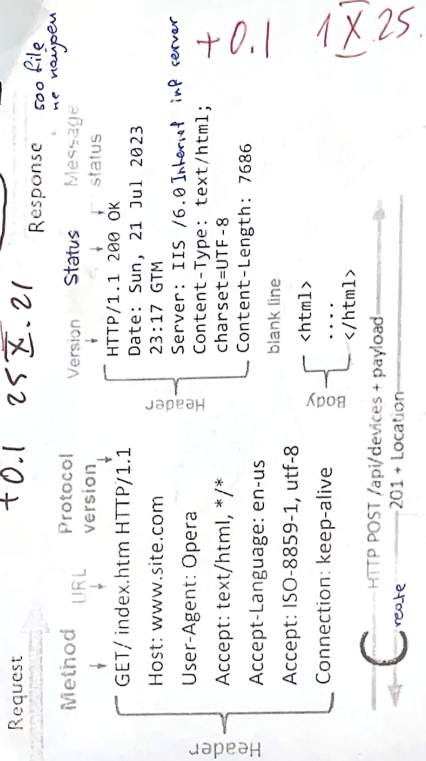 +0.1 25 X. 21
+0.1 1 X. 25.
Request
Method URL Protocol
version
GET/ index.htm HTTP/1.1
Host: www.site.com
User-Agent: Opera
Accept: text/html, */*
Accept-Language: en-us
Accept: ISO-8859-1, utf-8
Connection: keep-alive
Header
Response
500 file
не найден
Version Status Message
status
HTTP/1.1 200 OK
Date: Sun, 21 Jul 2023
23:17 GTM
Server: IIS /6.0 Internet inf server
Content-Type: text/html;
charset=UTF-8
Content-Length: 7686
Header
blank line
<html>
....
</html>
Body
Create
HTTP POST /api/devices + payload
201 + Location